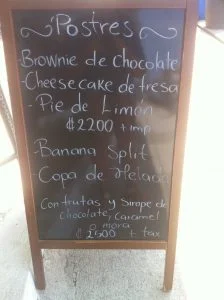 Postres
-Brownie de Chocolate
-Cheesecake de fresa
-Pie de Limón
₡2200 + imp
-Banana Split
-Copa de Helado
Con frutas y Sirope de
chocolate, Caramel
o mora
₡2500 + tax